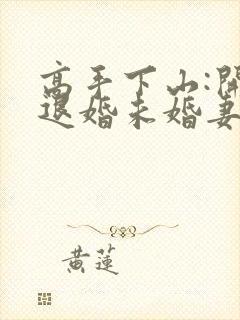 高手下山:開
退婚未婚妻
黃蓮